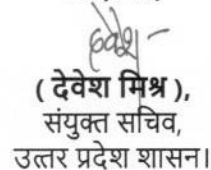 ( देवेश मिश्र ),
संयुक्त सचिव,
उत्तर प्रदेश शासन।